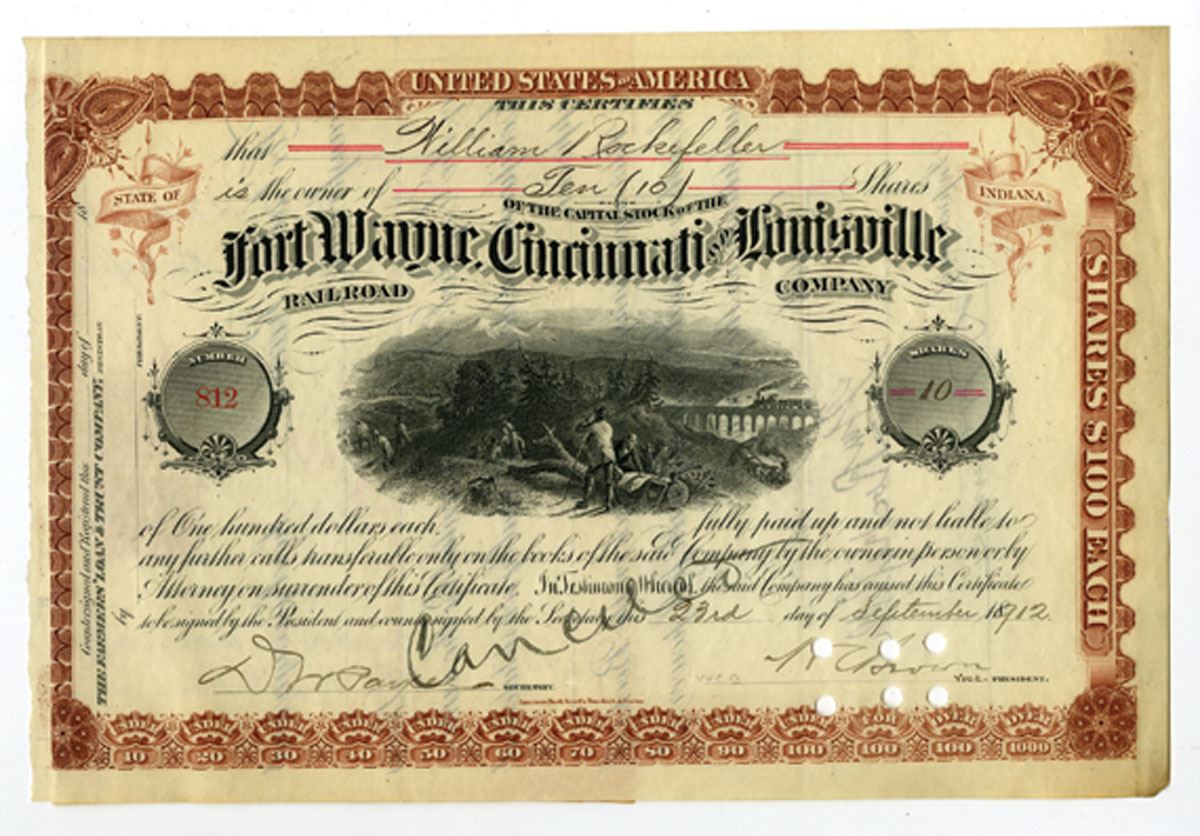 UNITED STATES OF AMERICA
THIS CERTIFIES
that William Rockefeller
is the owner of Ten (10) Shares
STATE OF
INDIANA
OF THE CAPITAL STOCK OF THE
Fort Wayne, Cincinnati AND Louisville
RAILROAD COMPANY
NUMBER
812
SHARES
10
of One hundred dollars each. fully paid up and not liable to
any further calls transferable only on the books of the said Company by the owner in person or by
Attorney on surrender of this Certificate. In Testimony Whereof, the said Company has caused this Certificate
to be signed by the President and countersigned by the Secretary this 23rd day of September 1912.
Cancelled
SECRETARY.
Brown
VICE-PRESIDENT.
SHARES $100 EACH
Countersigned and Registered this day of 18
THE FARMERS' LOAN & TRUST COMPANY,
by
UNDER UNDER UNDER UNDER UNDER UNDER UNDER UNDER UNDER UNDER FOR OVER OVER
10 20 30 40 50 60 70 80 90 100 100 100 1000